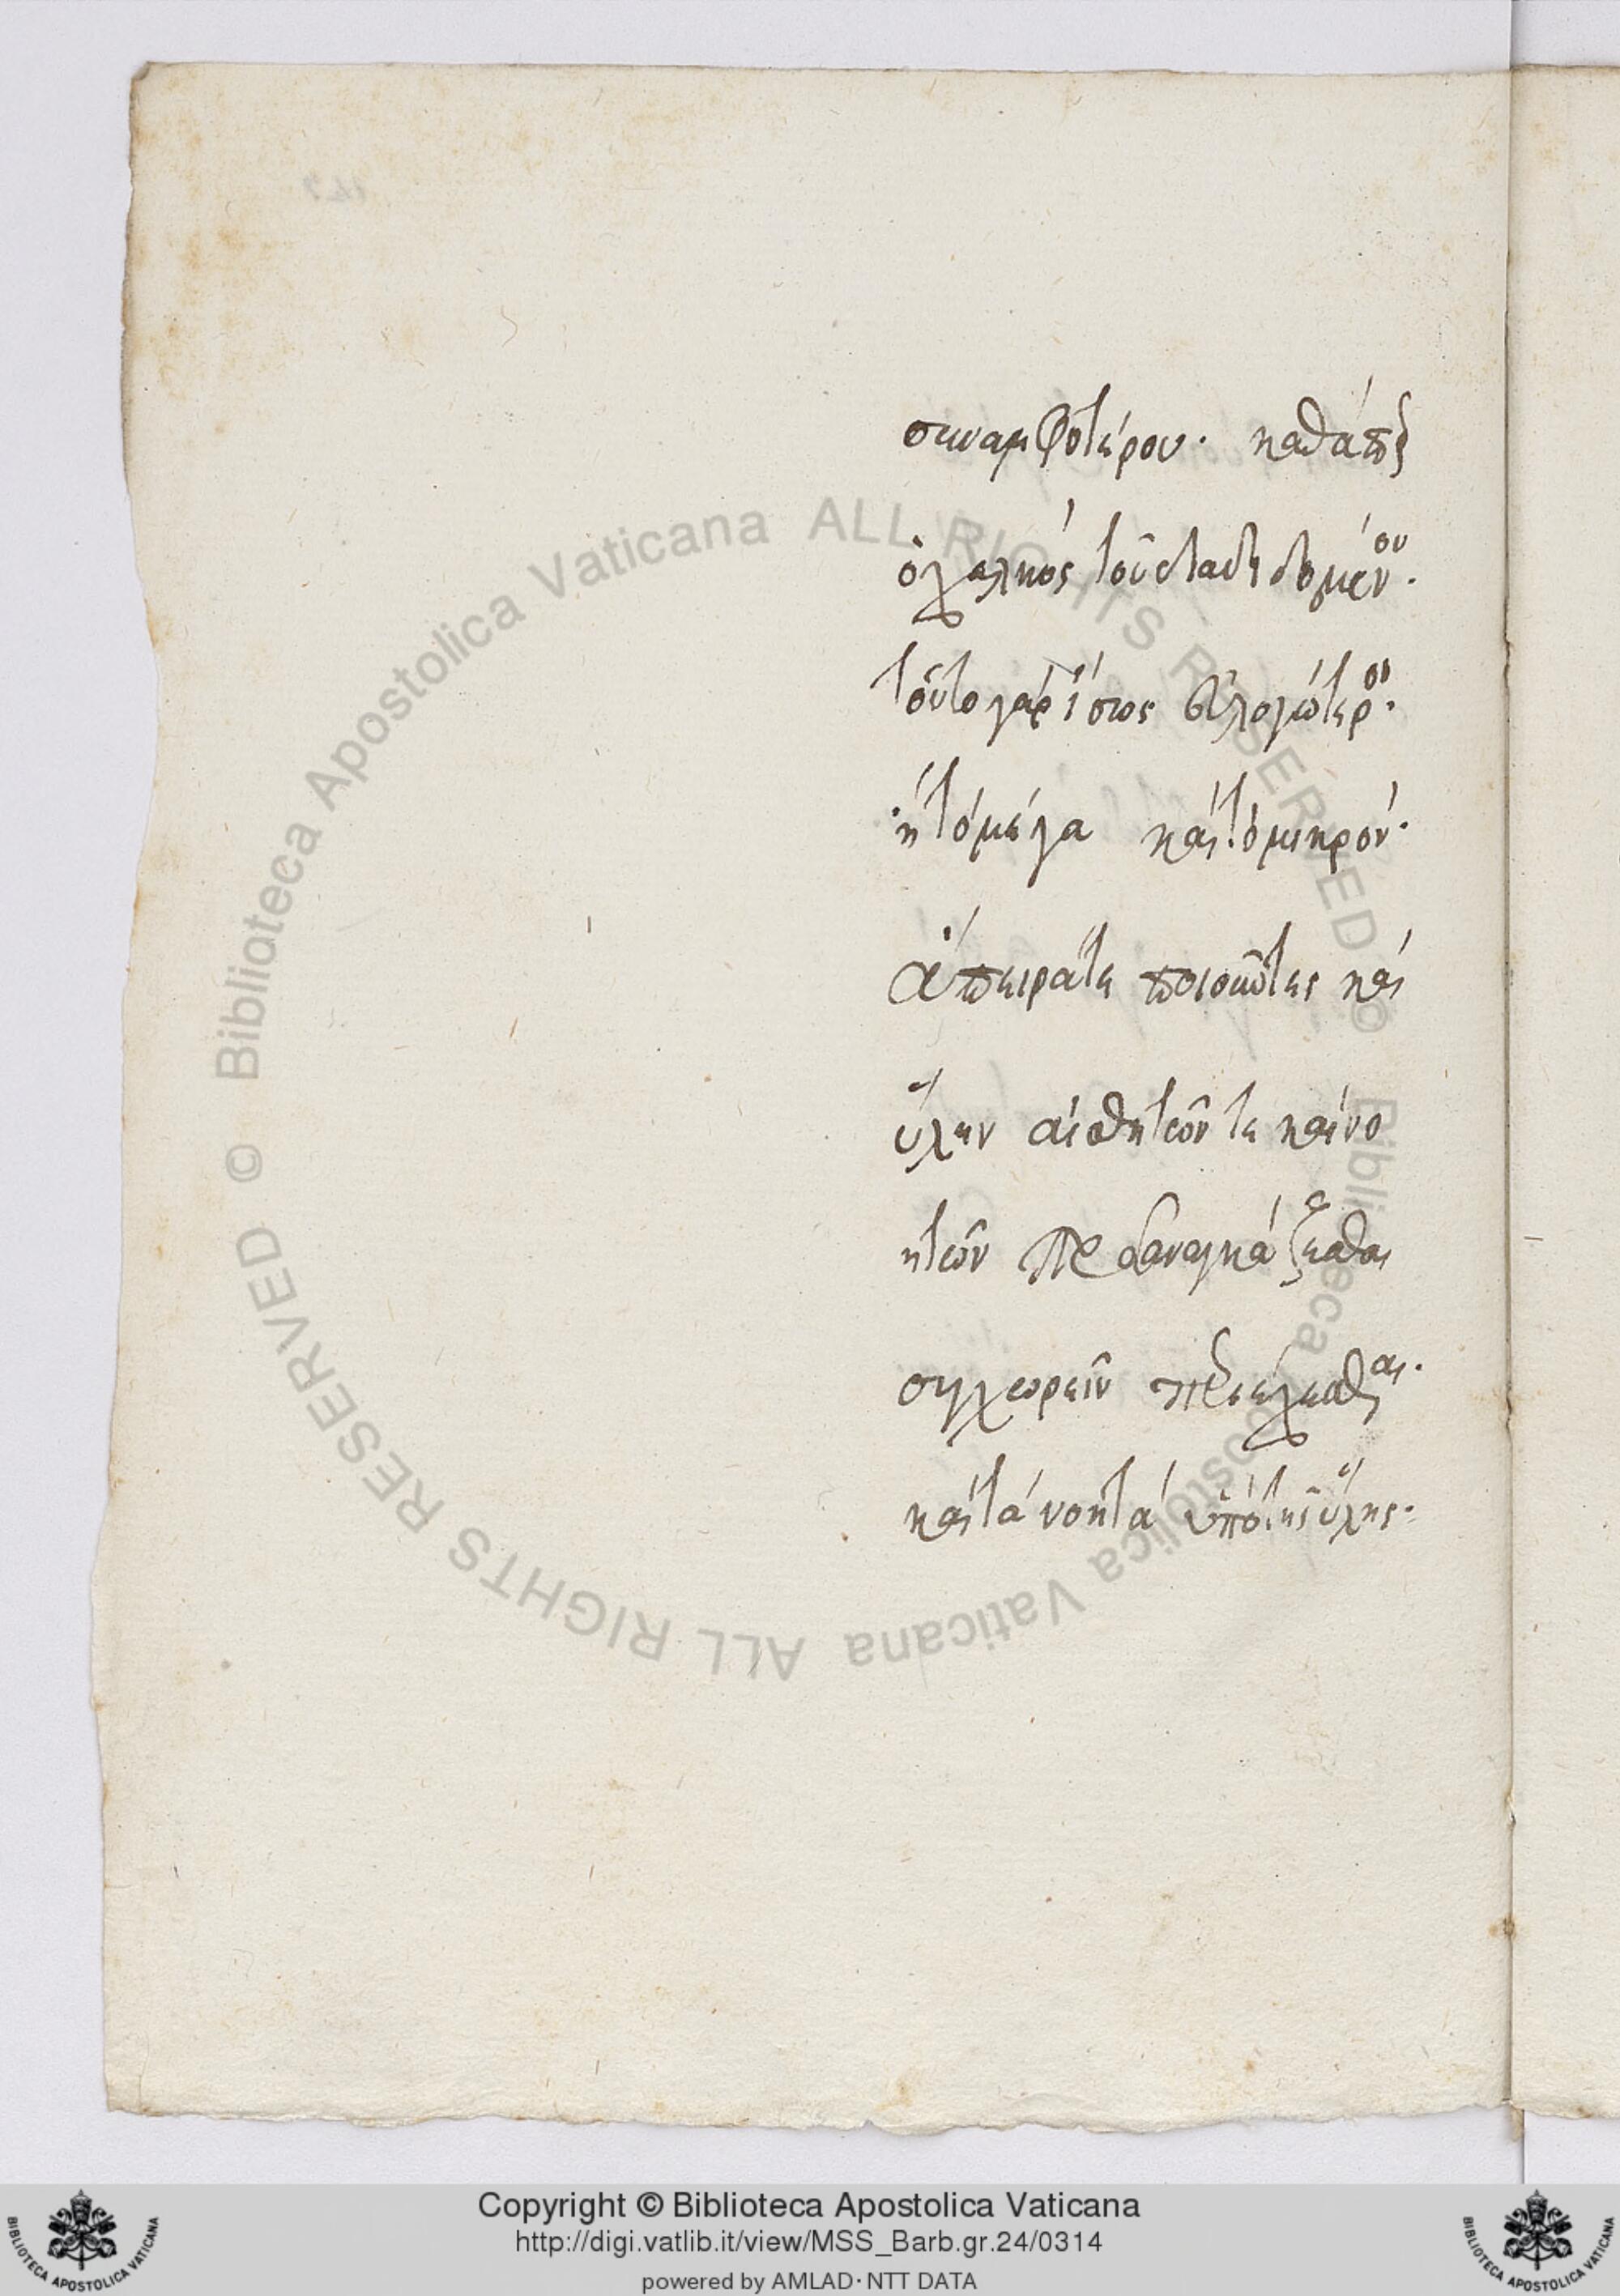 συναμφοτέρου. καθάπερ
ὁ χαλκὸς τοῦ
τοῦτο γὰρ ἴσως εὐλογώτερον.
ἢ τὸ μέγα καὶ τὸ μικρὸν.
ἄπειρά τε ποιοῦντες καὶ
ὕλην αἰσθητῶν τε καὶ νο
ητῶν προσαναγκάζεσθαι
συγχωρεῖν προσιεῖσθαι.
καὶ τὰ νοητὰ ὑπὸ τῆς ὕλης.
© Biblioteca Apostolica Vaticana ALL RIGHTS RESERVED
© Biblioteca Apostolica Vaticana ALL RIGHTS RESERVED
Copyright © Biblioteca Apostolica Vaticana
http://digi.vatlib.it/view/MSS_Barb.gr.24/0314
powered by AMLAD·NTT DATA
BIBLIOTECA APOSTOLICA VATICANA
BIBLIOTECA APOSTOLICA VATICANA